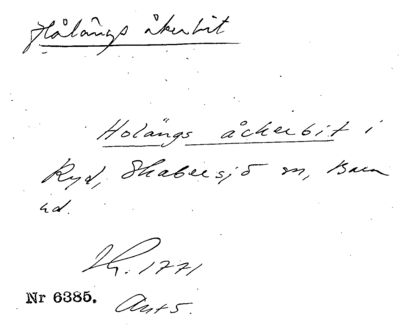 Hålängs åkerbit
Holängs åckerbit i
Ryd, Skabersjö sn, Bara
hd.
Lh. 1771
Nr 6385. Akt 5.